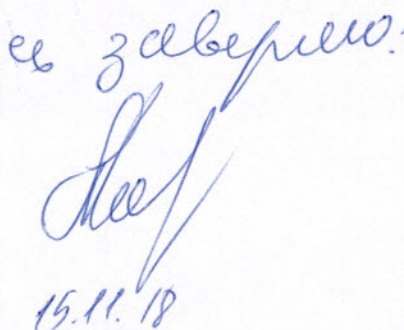 ь заверяю.
15.11.18